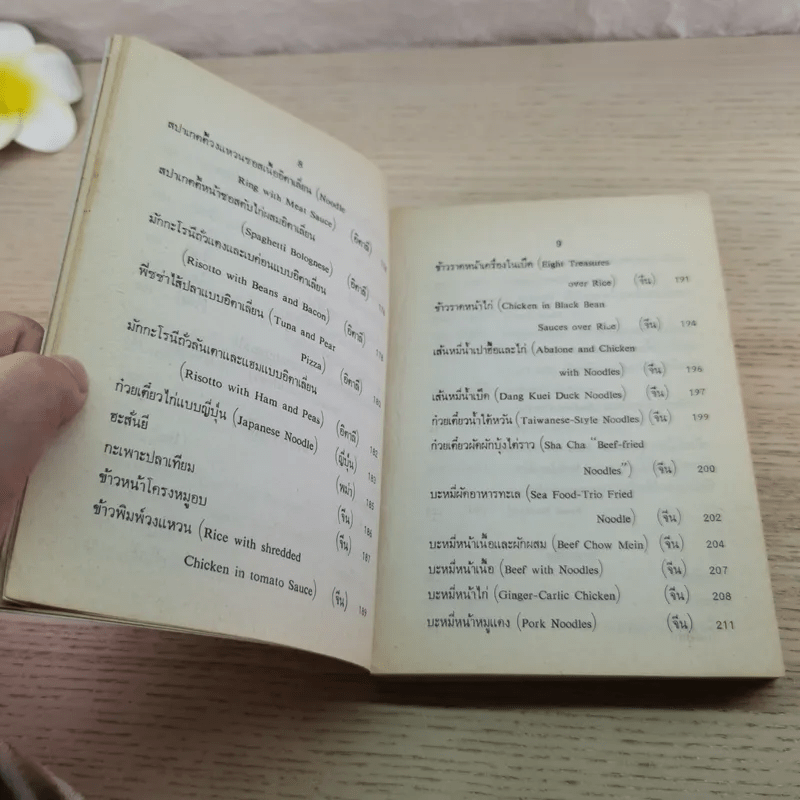 8
สปาเกตตี้วงแหวนซอสเนื้ออิตาเลี่ยน (Noodle
Ring with Meat Sauce) (อิตาลี)
สปาเกตตี้หน้าซอสตับไก่ผสมอิตาเลี่ยน
(Spaghetti Bolognese) (อิตาลี)
มักกะโรนีถั่วแดงและเบค่อนแบบอิตาเลี่ยน
(Risotto with Beans and Bacon) (อิตาลี)
พืซซ่าไส้ปลาแบบอิตาเลี่ยน (Tuna and Pear
Pizza) (อิตาลี) 180
มักกะโรนีถั่วลันเตาและแฮมแบบอิตาเลี่ยน
(Risotto with Ham and Peas) (อิตาลี) 182
ก๋วยเตี๋ยวไก่แบบญี่ปุ่น (Japanese Noodle) (ญี่ปุ่น) 183
ฮะสั่นยี (พม่า) 185
กะเพาะปลาเทียม (จีน) 186
ข้าวหน้าโครงหมูอบ (จีน) 187
ข้าวพิมพ์วงแหวน (Rice with shredded
Chicken in tomato Sauce) (จีน) 189
9
ข้าวราดหน้าเครื่องในเป็ด (Eight Treasures
over Rice) (จีน) 191
ข้าวราดหน้าไก่ (Chicken in Black Bean
Sauces over Rice) (จีน) 194
เส้นหมี่น้ำเปาฮื้อและไก่ (Abalone and Chicken
with Noodles) (จีน) 196
เส้นหมี่น้ำเป็ด (Dang Kuei Duck Noodles) (จีน) 197
ก๋วยเตี๋ยวน้ำไต้หวัน (Taiwanese-Style Noodles) (จีน) 199
ก๋วยเตี๋ยวผัดผักบุ้งไต่ราว (Sha Cha "Beef-fried
Noodles") (จีน) 200
บะหมี่ผัดอาหารทะเล (Sea Food-Trio Fried
Noodle) (จีน) 202
บะหมี่หน้าเนื้อและผักผสม (Beef Chow Mein) (จีน) 204
บะหมี่หน้าเนื้อ (Beef with Noodles) (จีน) 207
บะหมี่หน้าไก่ (Ginger-Carlic Chicken) (จีน) 208
บะหมี่หน้าหมูแดง (Pork Noodles) (จีน) 211